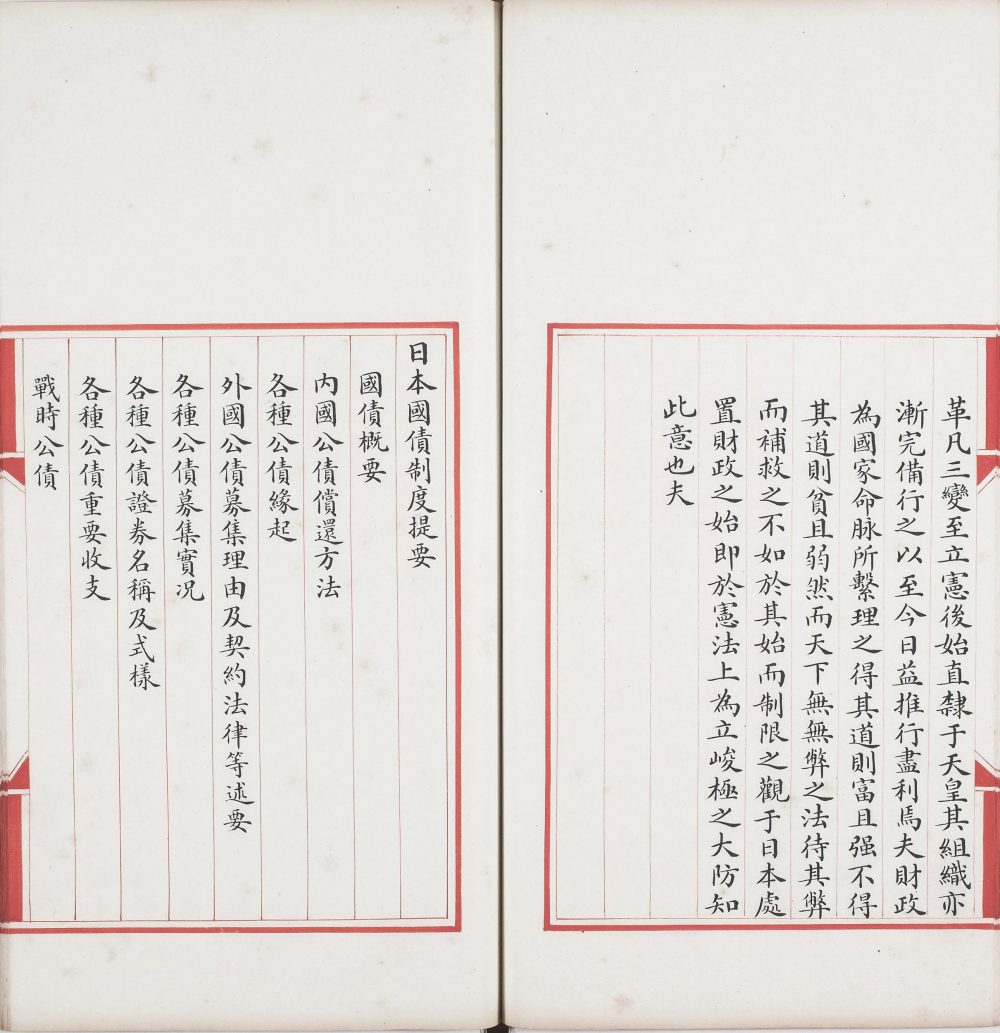 革凡三變至立憲後始直隸于天皇其組織亦
漸完備行之以至今日益推行盡利焉夫財政
為國家命脉所繫理之得其道則富且强不得
其道則貧且弱然而天下無無弊之法待其弊
而補救之不如於其始而制限之觀于日本處
置財政之始即於憲法上為立峻極之大防知
此意也夫
日本國債制度提要
國債概要
内國公債償還方法
各種公債緣起
外國公債募集理由及契約法律等述要
各種公債募集實况
各種公債證券名稱及式樣
各種公債重要收支
戰時公債